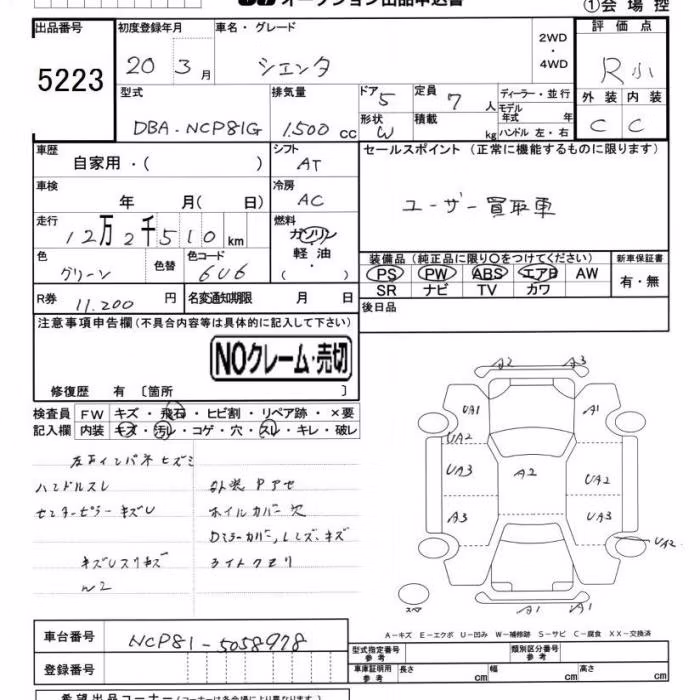 オークション出品申込書
①会場控
出品番号
5223
初度登録年月
20年3月
車名・グレード
シエンタ
2WD
・
4WD
評価点
R小
型式
DBA-NCP81G
排気量
1.500 cc
ドア 5
形状 W
定員 7 人
積載 kg
ディーラー・並行
モデル年式 年
ハンドル 左・右
外装 内装
C C
車歴
自家用・( )
シフト
AT
セールスポイント (正常に機能するものに限ります)
ユーザー買取車
車検
年 月( 日)
冷房
AC
走行
12万2千510km
燃料
ガソリン
軽油
( ・ )
色
グリーン
色替
色コード
6U6
装備品 (純正品に限り○をつけてください)
PS PW ABS エアB AW
SR ナビ TV カワ
新車保証書
有・無
R券 11.200 円
名変通知期限 月 日
後日品
注意事項申告欄(不具合内容等は具体的に記入して下さい)
NOクレーム・売切
修復歴 有 〔箇所 〕
検査員 FW キズ・飛石・ヒビ割・リペア跡・×要
記入欄 内装 キズ・汚レ・コゲ・穴・スレ・キレ・破レ
左右インパネヒズミ
ハンドルスレ
センターピラーキズU
外装Pアセ
ホイルカバー欠
Dミラーカバー,レンズ,キズ
キズUスリキズ
ライトクモリ
W2
A2 A3
UA1 A1
UA2
UA3 A2 UA2
A3 UA3
UA2
A1 UA1
スペア
A-キズ E-エクボ U-凹み W-補修跡 S-サビ C-腐食 XX-交換済
車台番号
NCP81-5058978
登録番号
型式指定番号
参考
類別区分番号
参考
車庫証明用
参考
長さ cm
幅 cm
高さ cm
希望出品コーナー (コーナーは各会場により異なります。)